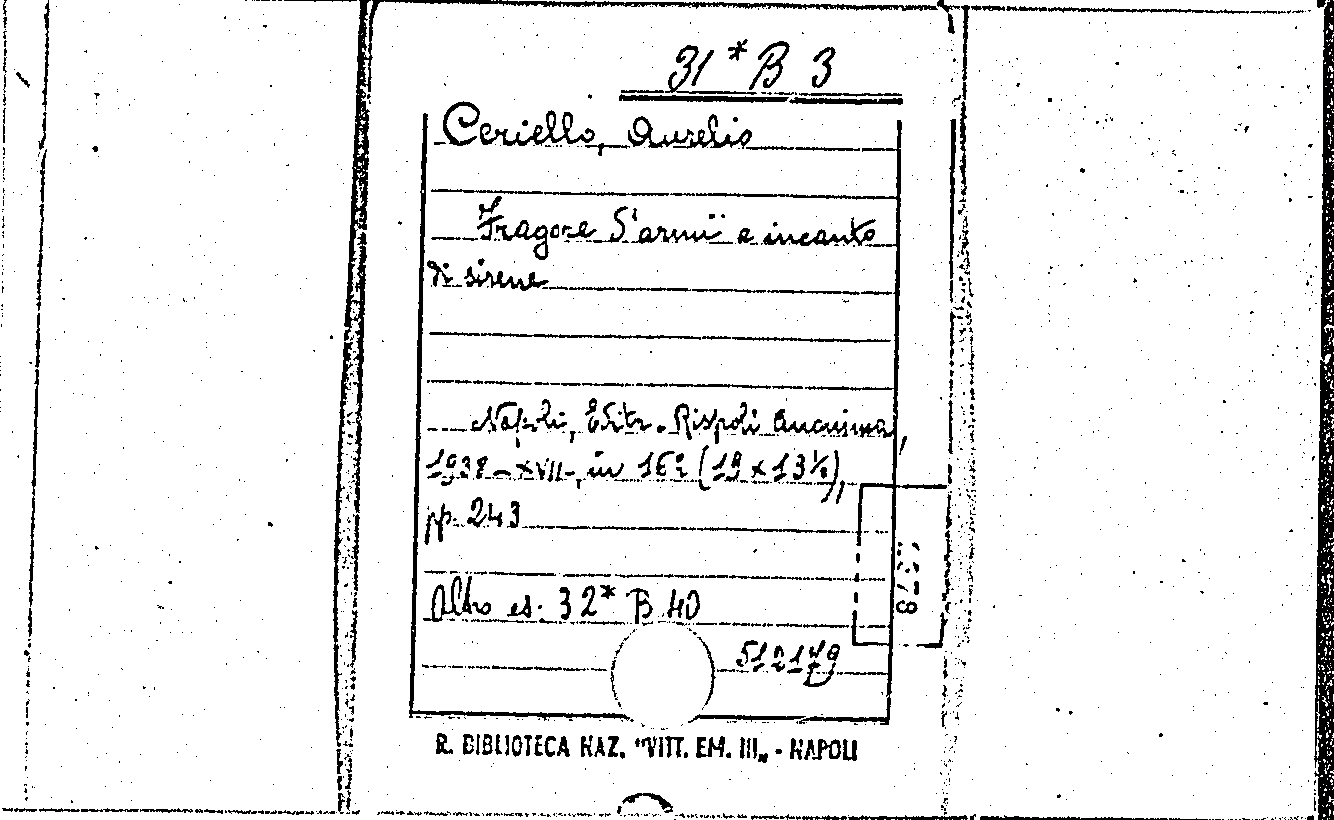 31* B 3
Ceriello, Aurelio
Fragore d'armi e incanto
di sirene
Napoli, Editr. Rispoli Anonima,
1938-XVII-, in 16º (19 x 13½),
pp. 243
Altro es. 32* B 40
512179
R. BIBLIOTECA NAZ. "VITT. EM. III„ - NAPOLI